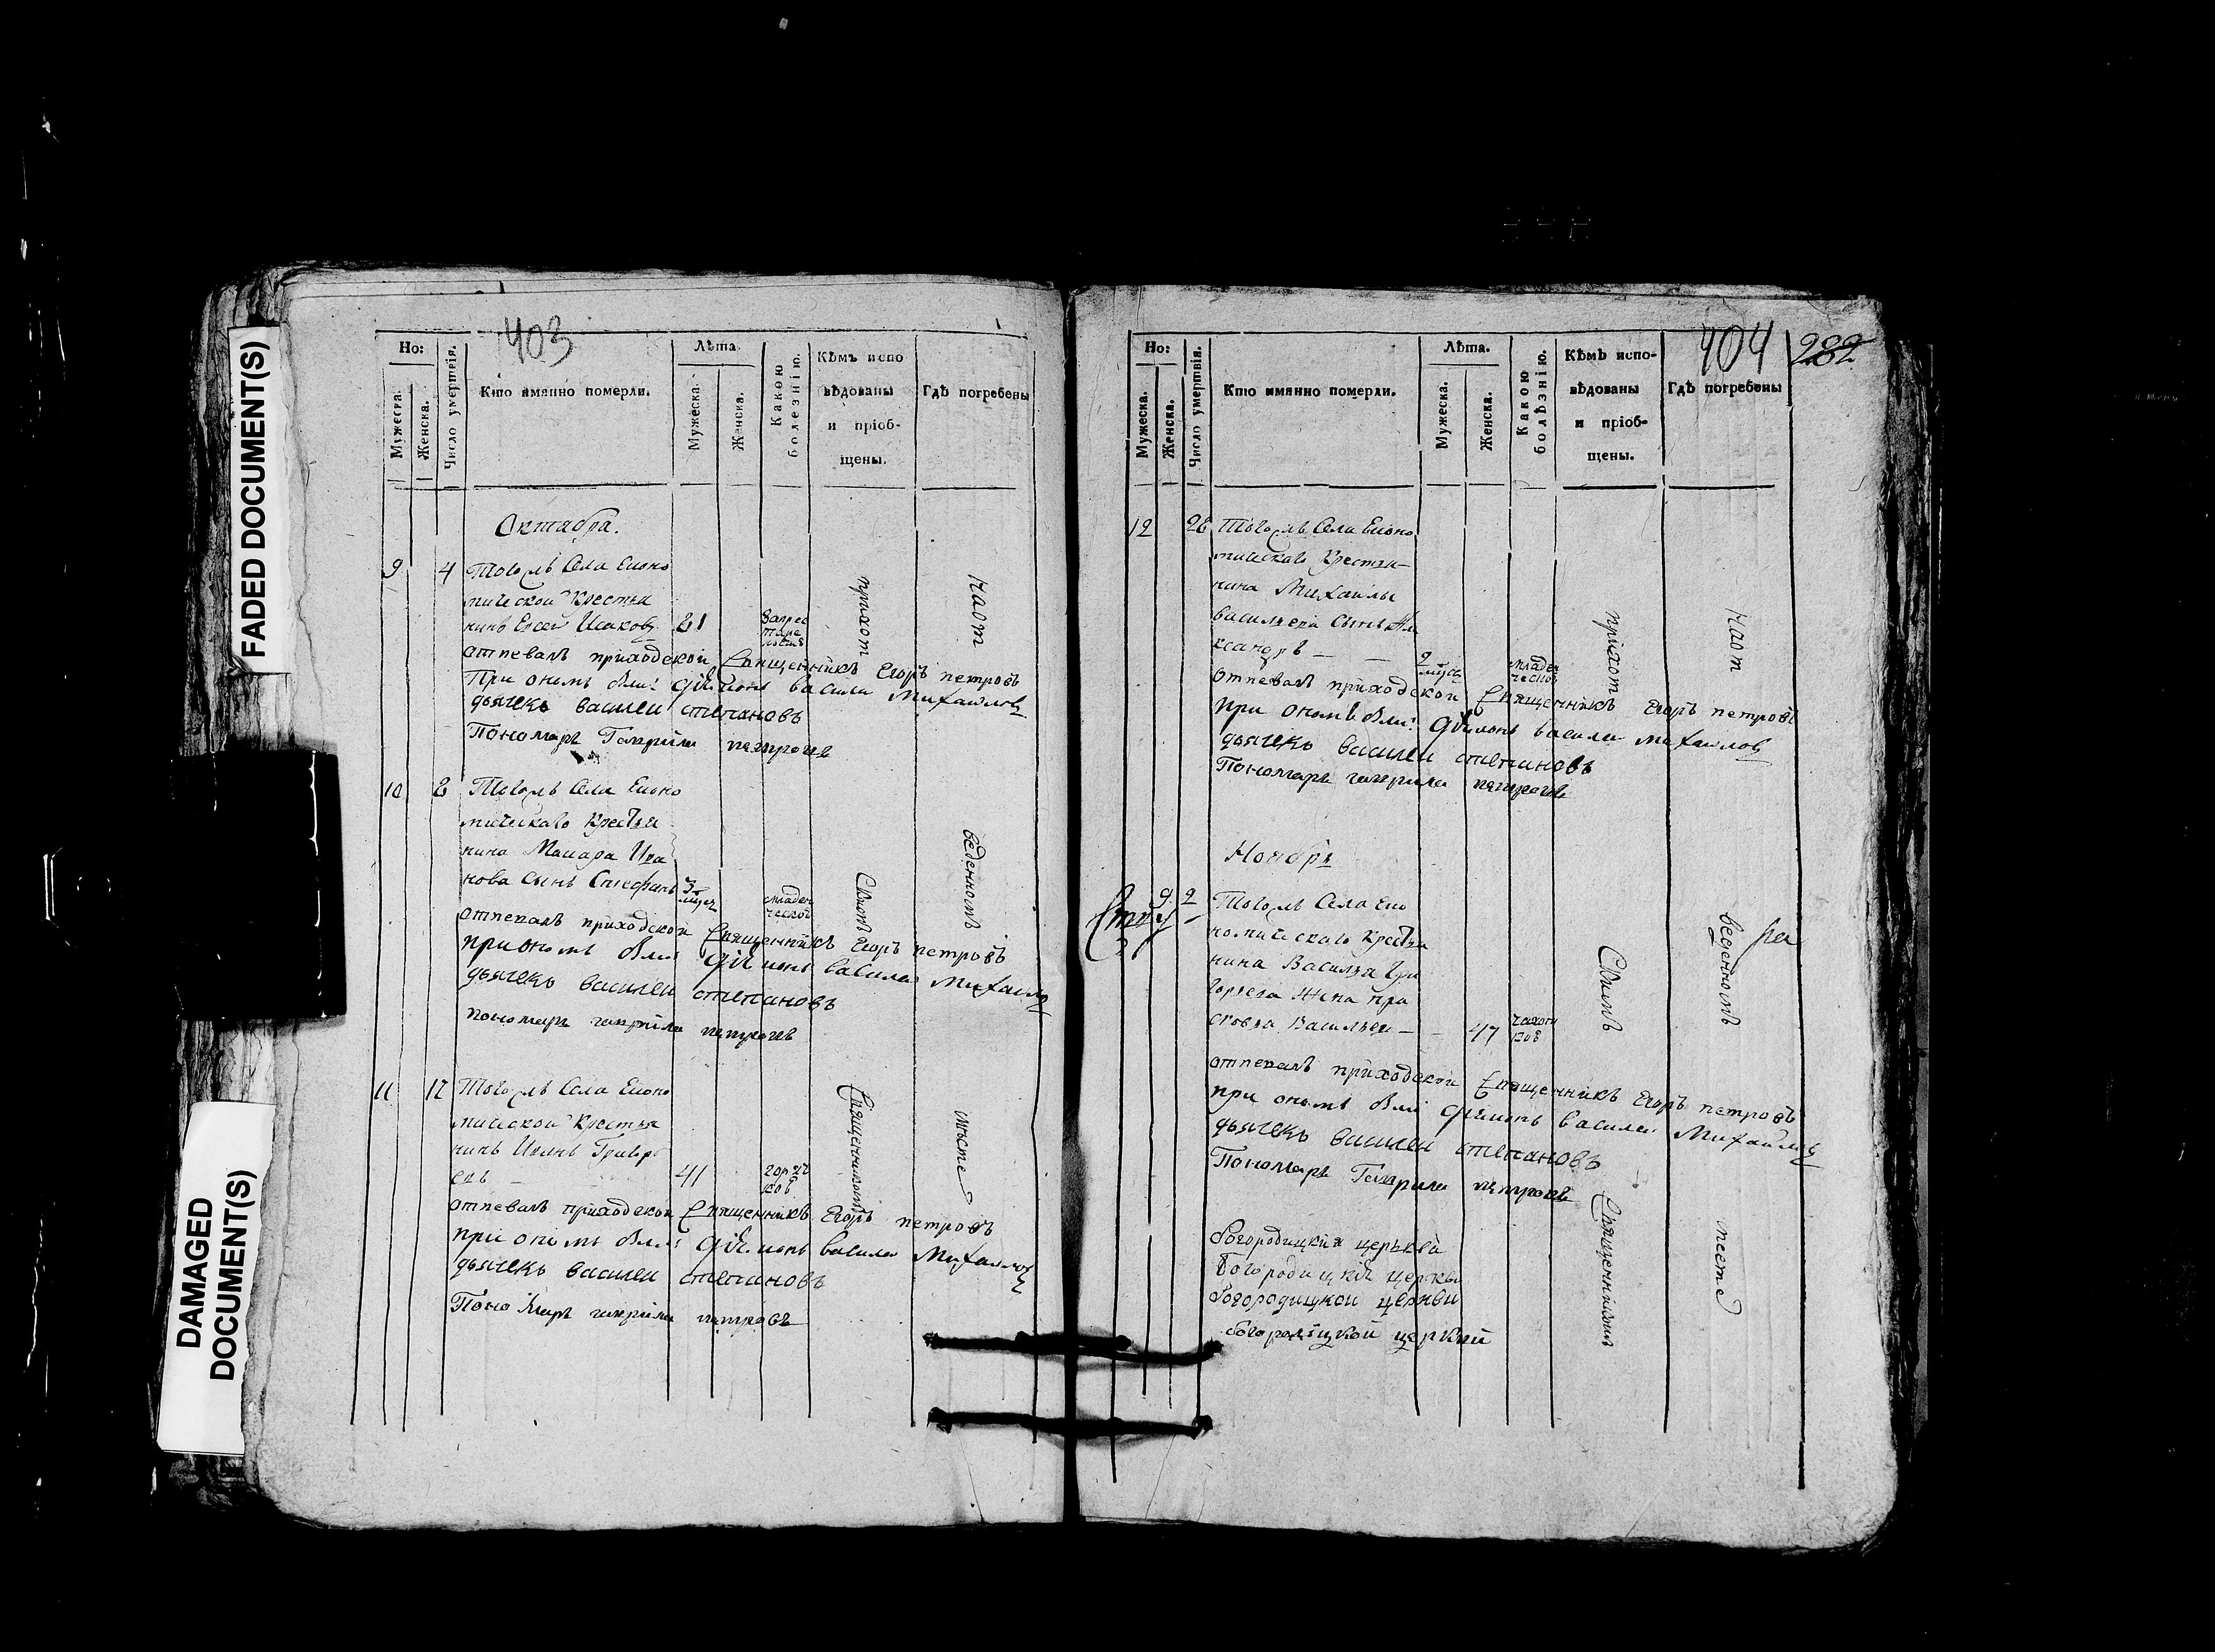 FADED DOCUMENT(S)
DAMAGED DOCUMENT(S)
403
Но:
Мужеска.
Женска.
Число умертвія.
Кто имянно померли.
Лѣта
Мужеска.
Женска.
Какою болезнію.
Кѣмъ испо
вѣдованы
и пріоб-
щены.
Гдѣ погребены
Октабра.
9 4 Тогожъ Села Еконо
мической Крестья
нинъ Евсей Исаковъ
отпевалъ приходской Священникъ Егоръ петровъ
При ономъ были діаконъ васили Михаиловъ
дьячекъ василеи степановъ
Пономарь Гаврила петровъ
10 Тогожъ Села Еконо
мическаго Крестья
нина Макара Ива
нова Сынъ Стефанъ 3 младен
ческой
отпевалъ приходской Священникъ Егоръ петровъ
при ономъ были діаконъ василеи Михаило
дьячекъ василеи степановъ
пономарь гаврила петровъ
11 Тогожъ Села Еконо
мической Крестья
нинъ Иванъ Григорь
евъ 41 горяч
кой
отпевалъ приходской Священникъ Егоръ петровъ
при ономъ были діаконъ васили Михаиловъ
дьячекъ василеи степановъ
Пономарь гаврила петровъ
приход
Скимъ
Священникомъ
На от
веденномъ
месте
404
282
Но:
Мужеска.
Женска.
Число умертвія.
Кто имянно померли.
Лѣта.
Мужеска.
Женска.
Какою болѣзнію.
Кѣмъ испо-
вѣдованы
и пріоб-
щены.
Гдѣ погребены
12 Тогожъ Села Еконо
мическаго Крестья-
нина Михаилы
васильева Сынъ Але
ксандръ 2 младен
ческой
отпевалъ приходской Священникъ Егоръ петровъ
при ономъ были діаконъ васили михаиловъ
дьячекъ василеи степановъ
Пономарь гаврила петровъ
Ноября
9 2 Тогожъ Села Еко
номическаго Крестья
нина Василья Гри
горьева Жена пра
сковья Васильева 47 чахот
кой
отпевалъ приходской Священникъ Егоръ петровъ
при ономъ были діаконъ василеи Михаиловъ
дьячекъ василеи степановъ
Пономарь Гаврила петровъ
приход
Скимъ
Священникомъ
На от
веденномъ
месте
богородицкия церькви
богородицкія церкви
богородицкои церкви
богородицкой церкви